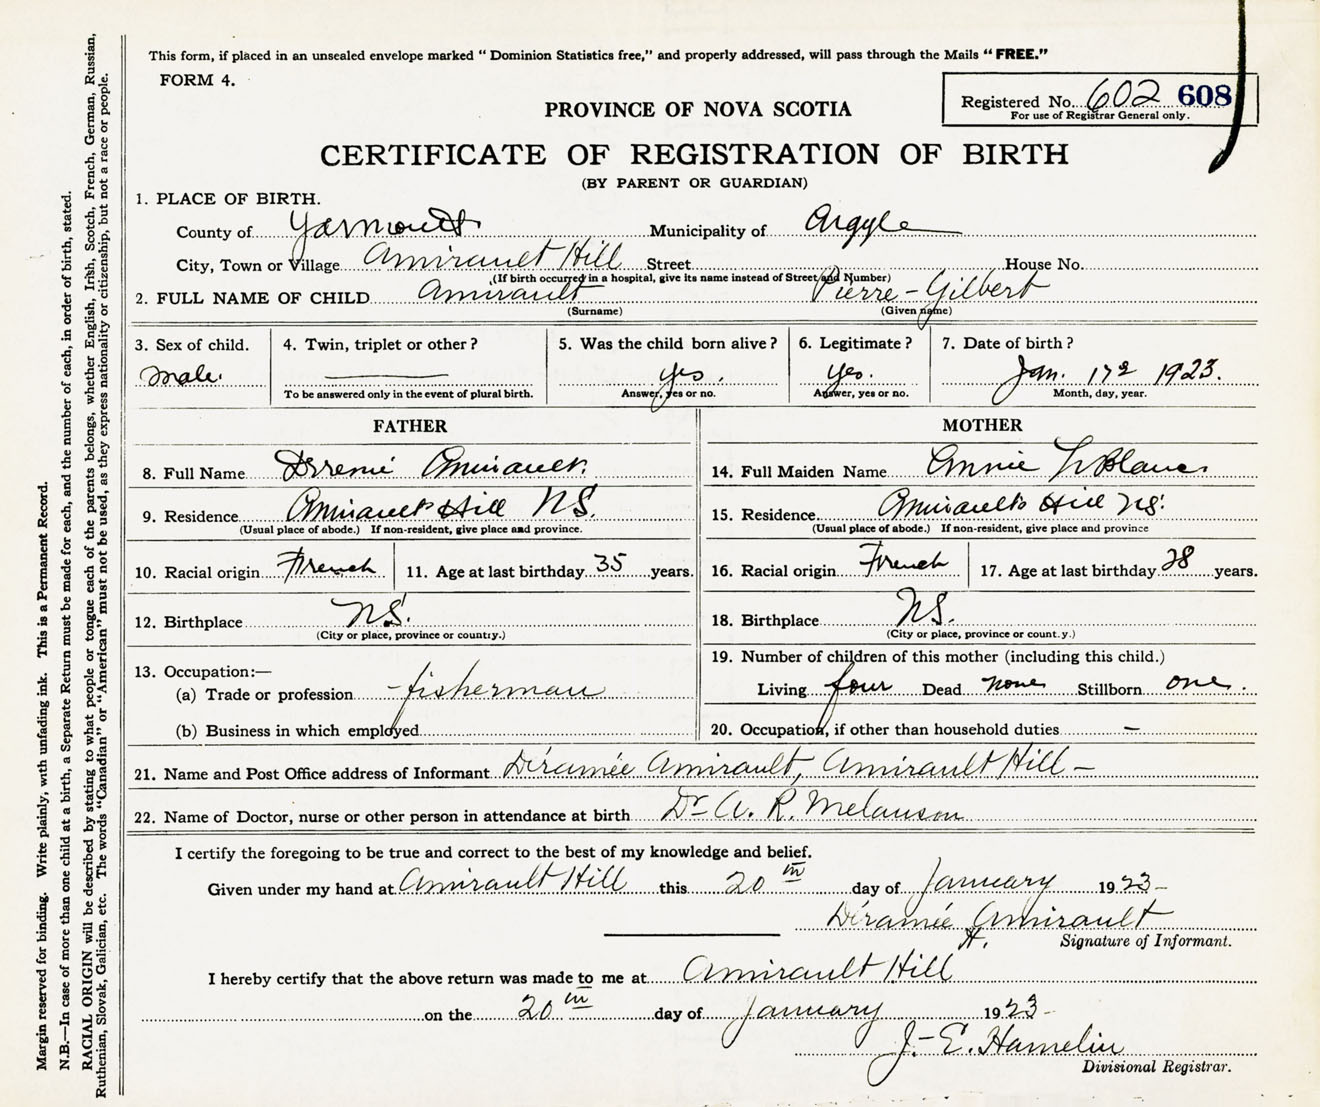 This form, if placed in an unsealed envelope marked “ Dominion Statistics free,” and properly addressed, will pass through the Mails “ FREE.”
FORM 4.
Registered No. 602 608
For use of Registrar General only.
PROVINCE OF NOVA SCOTIA
CERTIFICATE OF REGISTRATION OF BIRTH
(BY PARENT OR GUARDIAN)
1. PLACE OF BIRTH.
County of Yarmouth Municipality of Argyle
City, Town or Village Amirault Hill Street House No.
(If birth occurred in a hospital, give its name instead of Street and Number)
2. FULL NAME OF CHILD Amirault Pierre-Gilbert
(Surname) (Given name)
3. Sex of child. 4. Twin, triplet or other ? 5. Was the child born alive ? 6. Legitimate ? 7. Date of birth ?
male. yes. yes. Jan. 17 1923.
To be answered only in the event of plural birth. Answer, yes or no. Answer, yes or no. Month, day, year.
FATHER MOTHER
8. Full Name Amirault. 14. Full Maiden Name Annie LeBlanc
9. Residence Amirault Hill NS. 15. Residence Amiraults Hill NS.
(Usual place of abode.) If non-resident, give place and province. (Usual place of abode.) If non-resident, give place and province
10. Racial origin French 11. Age at last birthday 35 years. 16. Racial origin French 17. Age at last birthday 28 years.
12. Birthplace NS. 18. Birthplace NS.
(City or place, province or country.) (City or place, province or count.y.)
13. Occupation:— 19. Number of children of this mother (including this child.)
(a) Trade or profession fisherman Living four Dead none Stillborn one.
(b) Business in which employed 20. Occupation, if other than household duties —
21. Name and Post Office address of Informant Déramée Amirault, Amirault Hill —
22. Name of Doctor, nurse or other person in attendance at birth Dr A. R. Melanson
I certify the foregoing to be true and correct to the best of my knowledge and belief.
Given under my hand at Amirault Hill this 20th day of January 1923-
Déramée Amirault
H. Signature of Informant.
I hereby certify that the above return was made to me at Amirault Hill
on the 20th day of January 1923-
J.-E. Hamelin
Divisional Registrar.
Margin reserved for binding. Write plainly, with unfading ink. This is a Permanent Record.
N.B.—In case of more than one child at a birth, a Separate Return must be made for each, and the number of each, in order of birth, stated.
RACIAL ORIGIN will be described by stating to what people or tongue each of the parents belongs, whether English, Irish, Scotch, French, German, Russian,
Ruthenian, Slovak, Galician, etc. The words “Canadian” or “American” must not be used, as they express nationality or citizenship, but not a race or people.